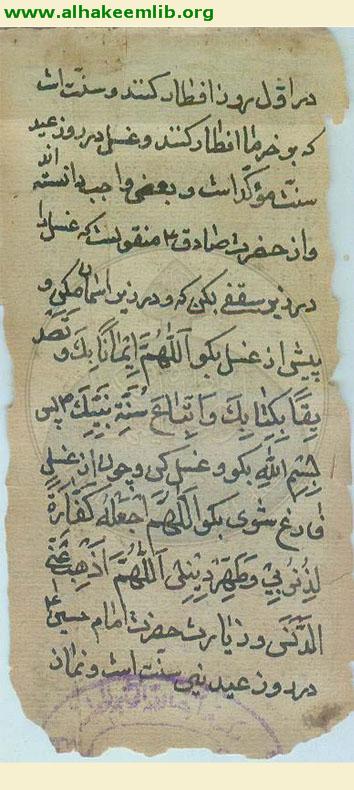 www.alhakeemlib.org
در اوّل روز افطار کنند و سنّت است
که بو خرما افطار کنند و غسل در روز عید
سنّت مؤکّد است و بعضی واجب دانسته اند
و از حضرت صادق ع منقولست که غسل را
در زیر سقفی بکن که و در زیر اسمان مکن و
پیش از غسل بکو اَللّٰهُمَّ اِیمَانًا بِكَ وَ تَصْدِ
یقًا بِكِتٰابِكَ وَ اتِّبَاعَ سُنَّةِ نَبِیِّكَ ص پس
بِسْمِ اللّٰهِ بکو و غسل کن و چون از غسل
فارغ شوی بکو اَللّٰهُمَّ اجْعَلْهُ كَفَّارَةً
لِذُنُوبِي وَ طَهِّرْ دِینِي اَللّٰهُمَّ اَذْهِبْ عَنِّي
الدَّنَسَ و زیارت حضرت امام حسین ع
در روز عید نیز سنت است و نماز